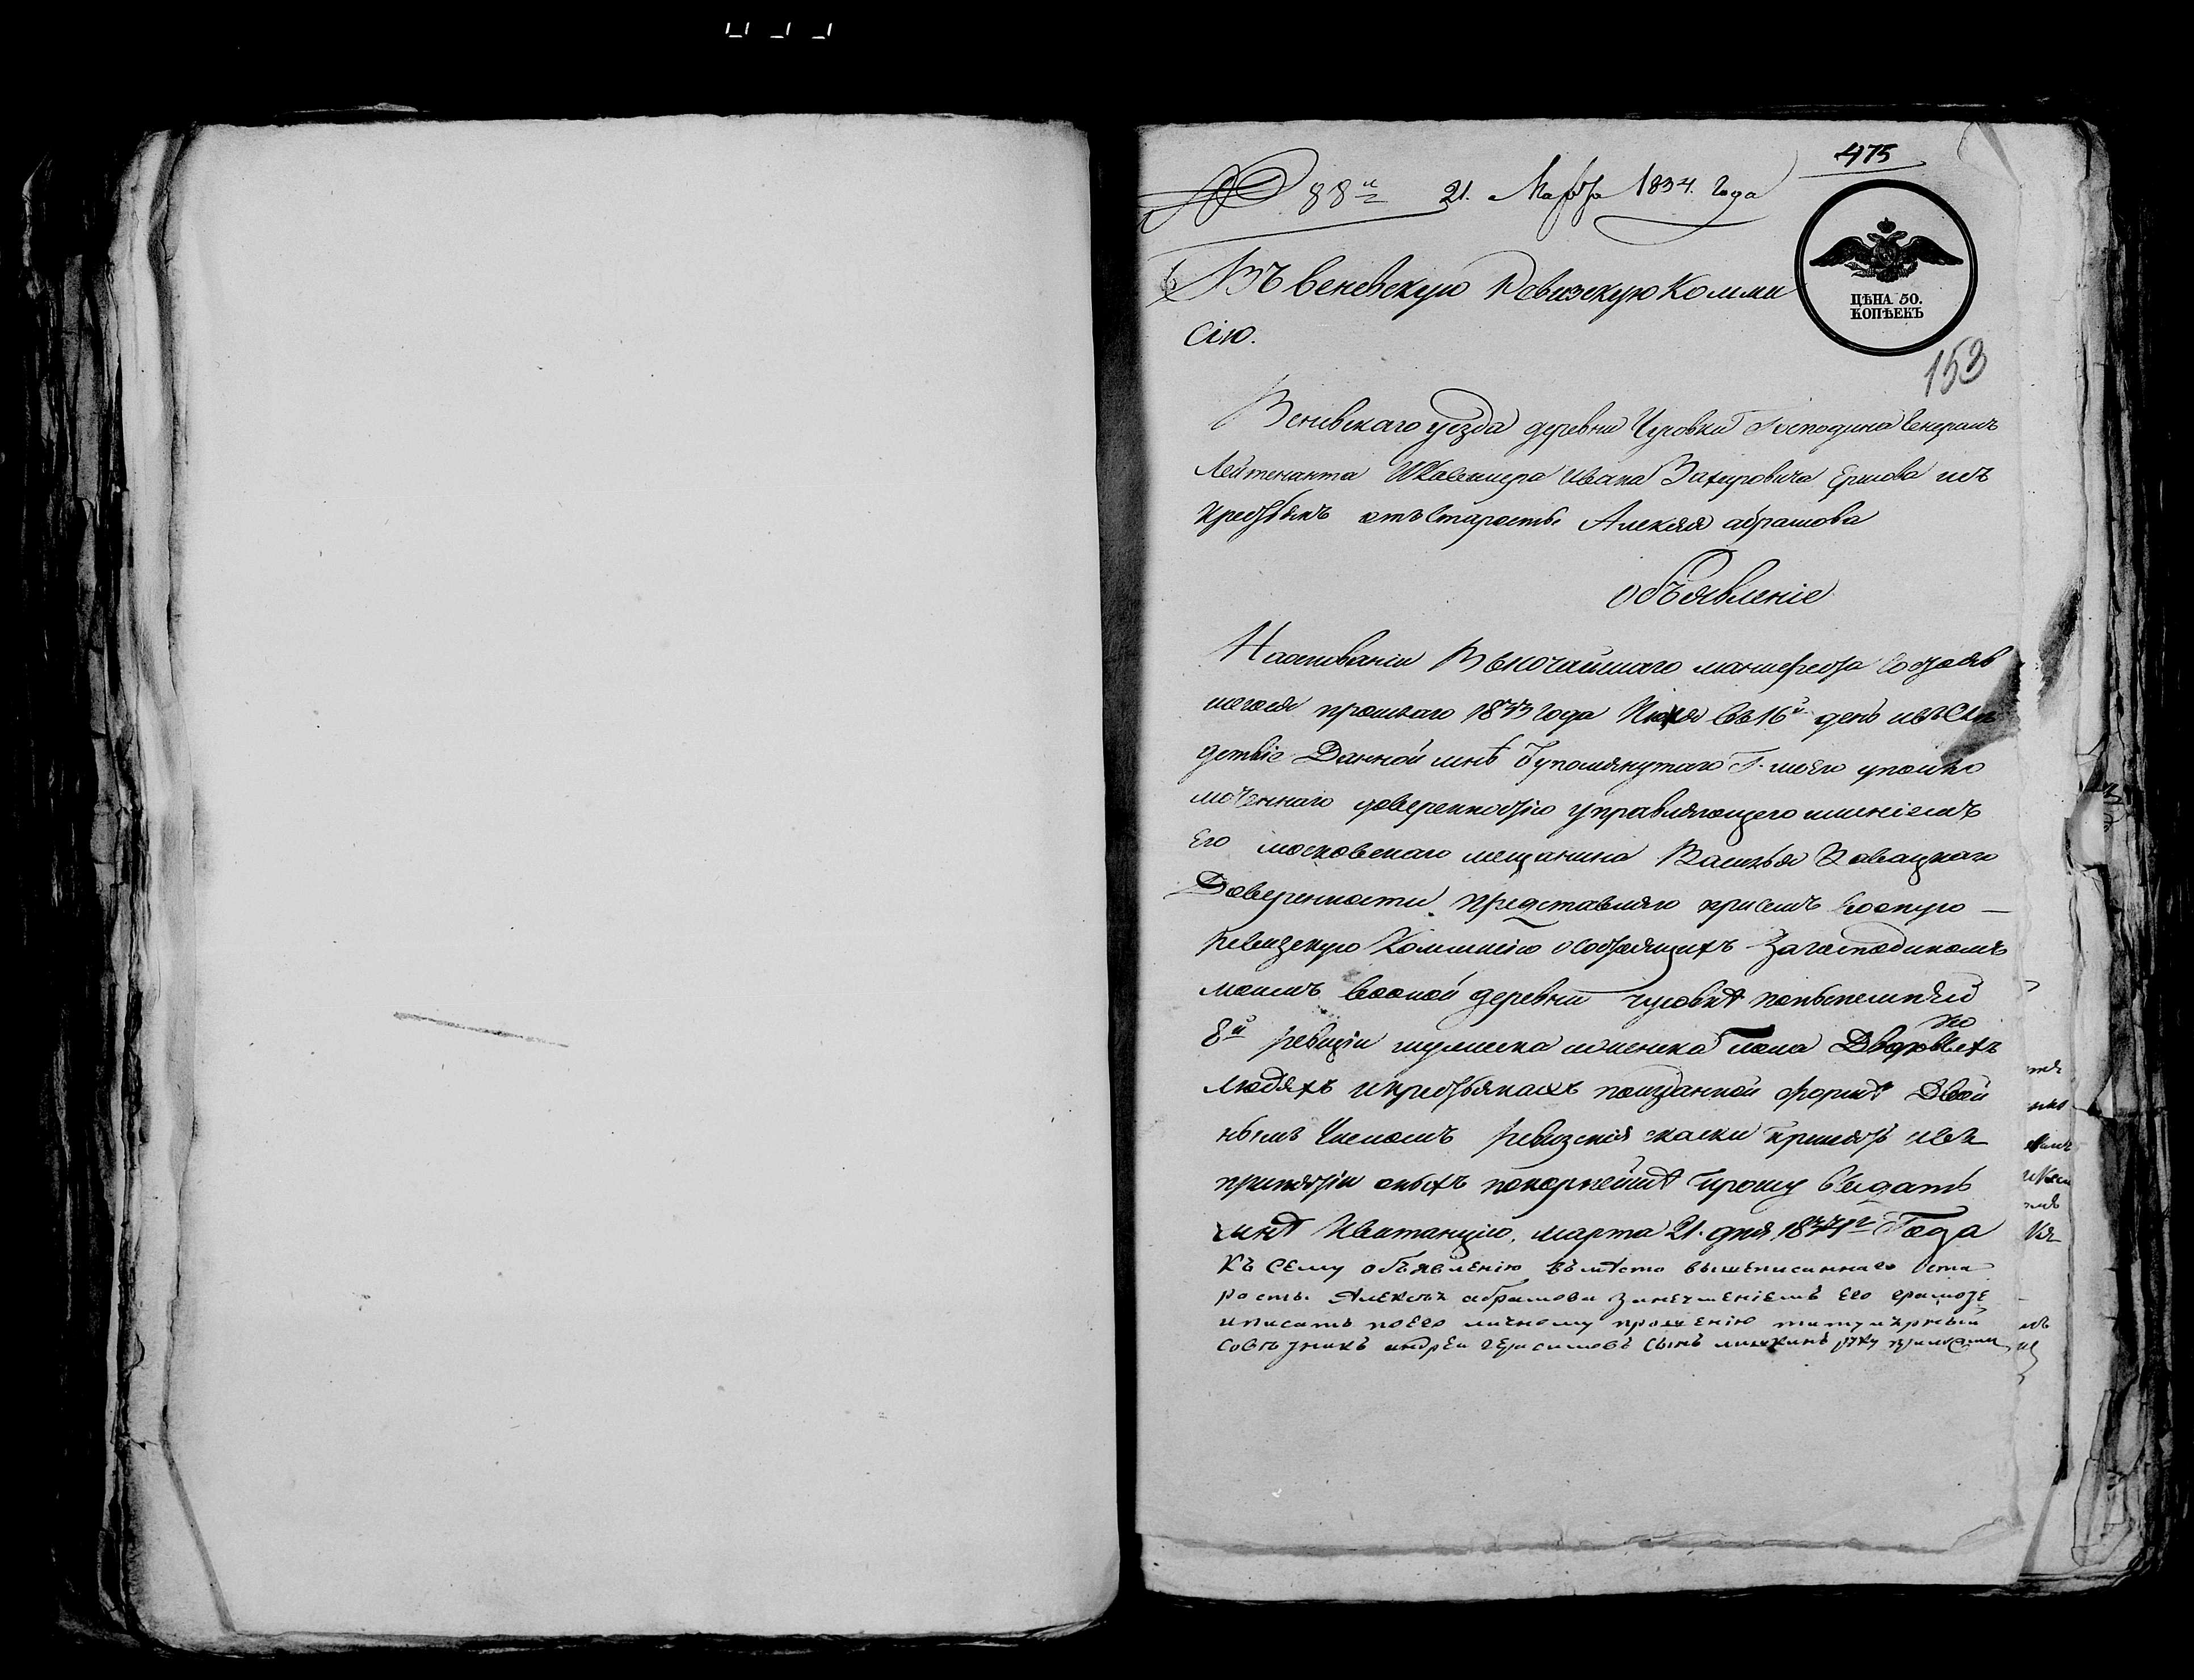 475
№ 88й 21. Марта 1834. Года
ЦѢНА 50.
КОПѢЕКЪ
Въ веневскую Ревизскую Комми
сію.
153
Веневскаго уезда деревни Чусовки Господина Генералъ
Лейтенанта Икавалера Ивана Захаровича Ершова изъ
крестьянъ отъ Старосты Алексея абрамова
объявленіе
Наосновании Высочайшаго манифеста Состояв
шегося прошлаго 1833 года Июня въ 16й день ивъ Слѣ
детвіе Данной мнѣ упомянутаго Г. моего уполно
моченнаго доверенностію управляющего имѣніемъ
Его московскаго мещанина Василья
Доверенности представляю присемъ воопую
ревизскую Коммисію осостоящихъ Загосподиномъ
моимъ вооной деревни чусовкѣ понынешней
8й ревизіи мужеска иженска Пола Дворовыхъ
но
людяхъ икрестьянахъ поизданной формѣ Двой
нымъ Числомъ ревизскія скаски принять ивъ
принятіи оныхъ покорнейшѣ прошу выдать
мнѣ Квитанцію, марта 21. дня 1834го Года
Къ сему объявленію вмѣсто вышеписаннаго Ста
росты Алексѣя абрамова занеумениемъ его грамоте
иписать поего личному прошению титулярный
советникъ андрей герасимовъ сынъ руку приложилъ